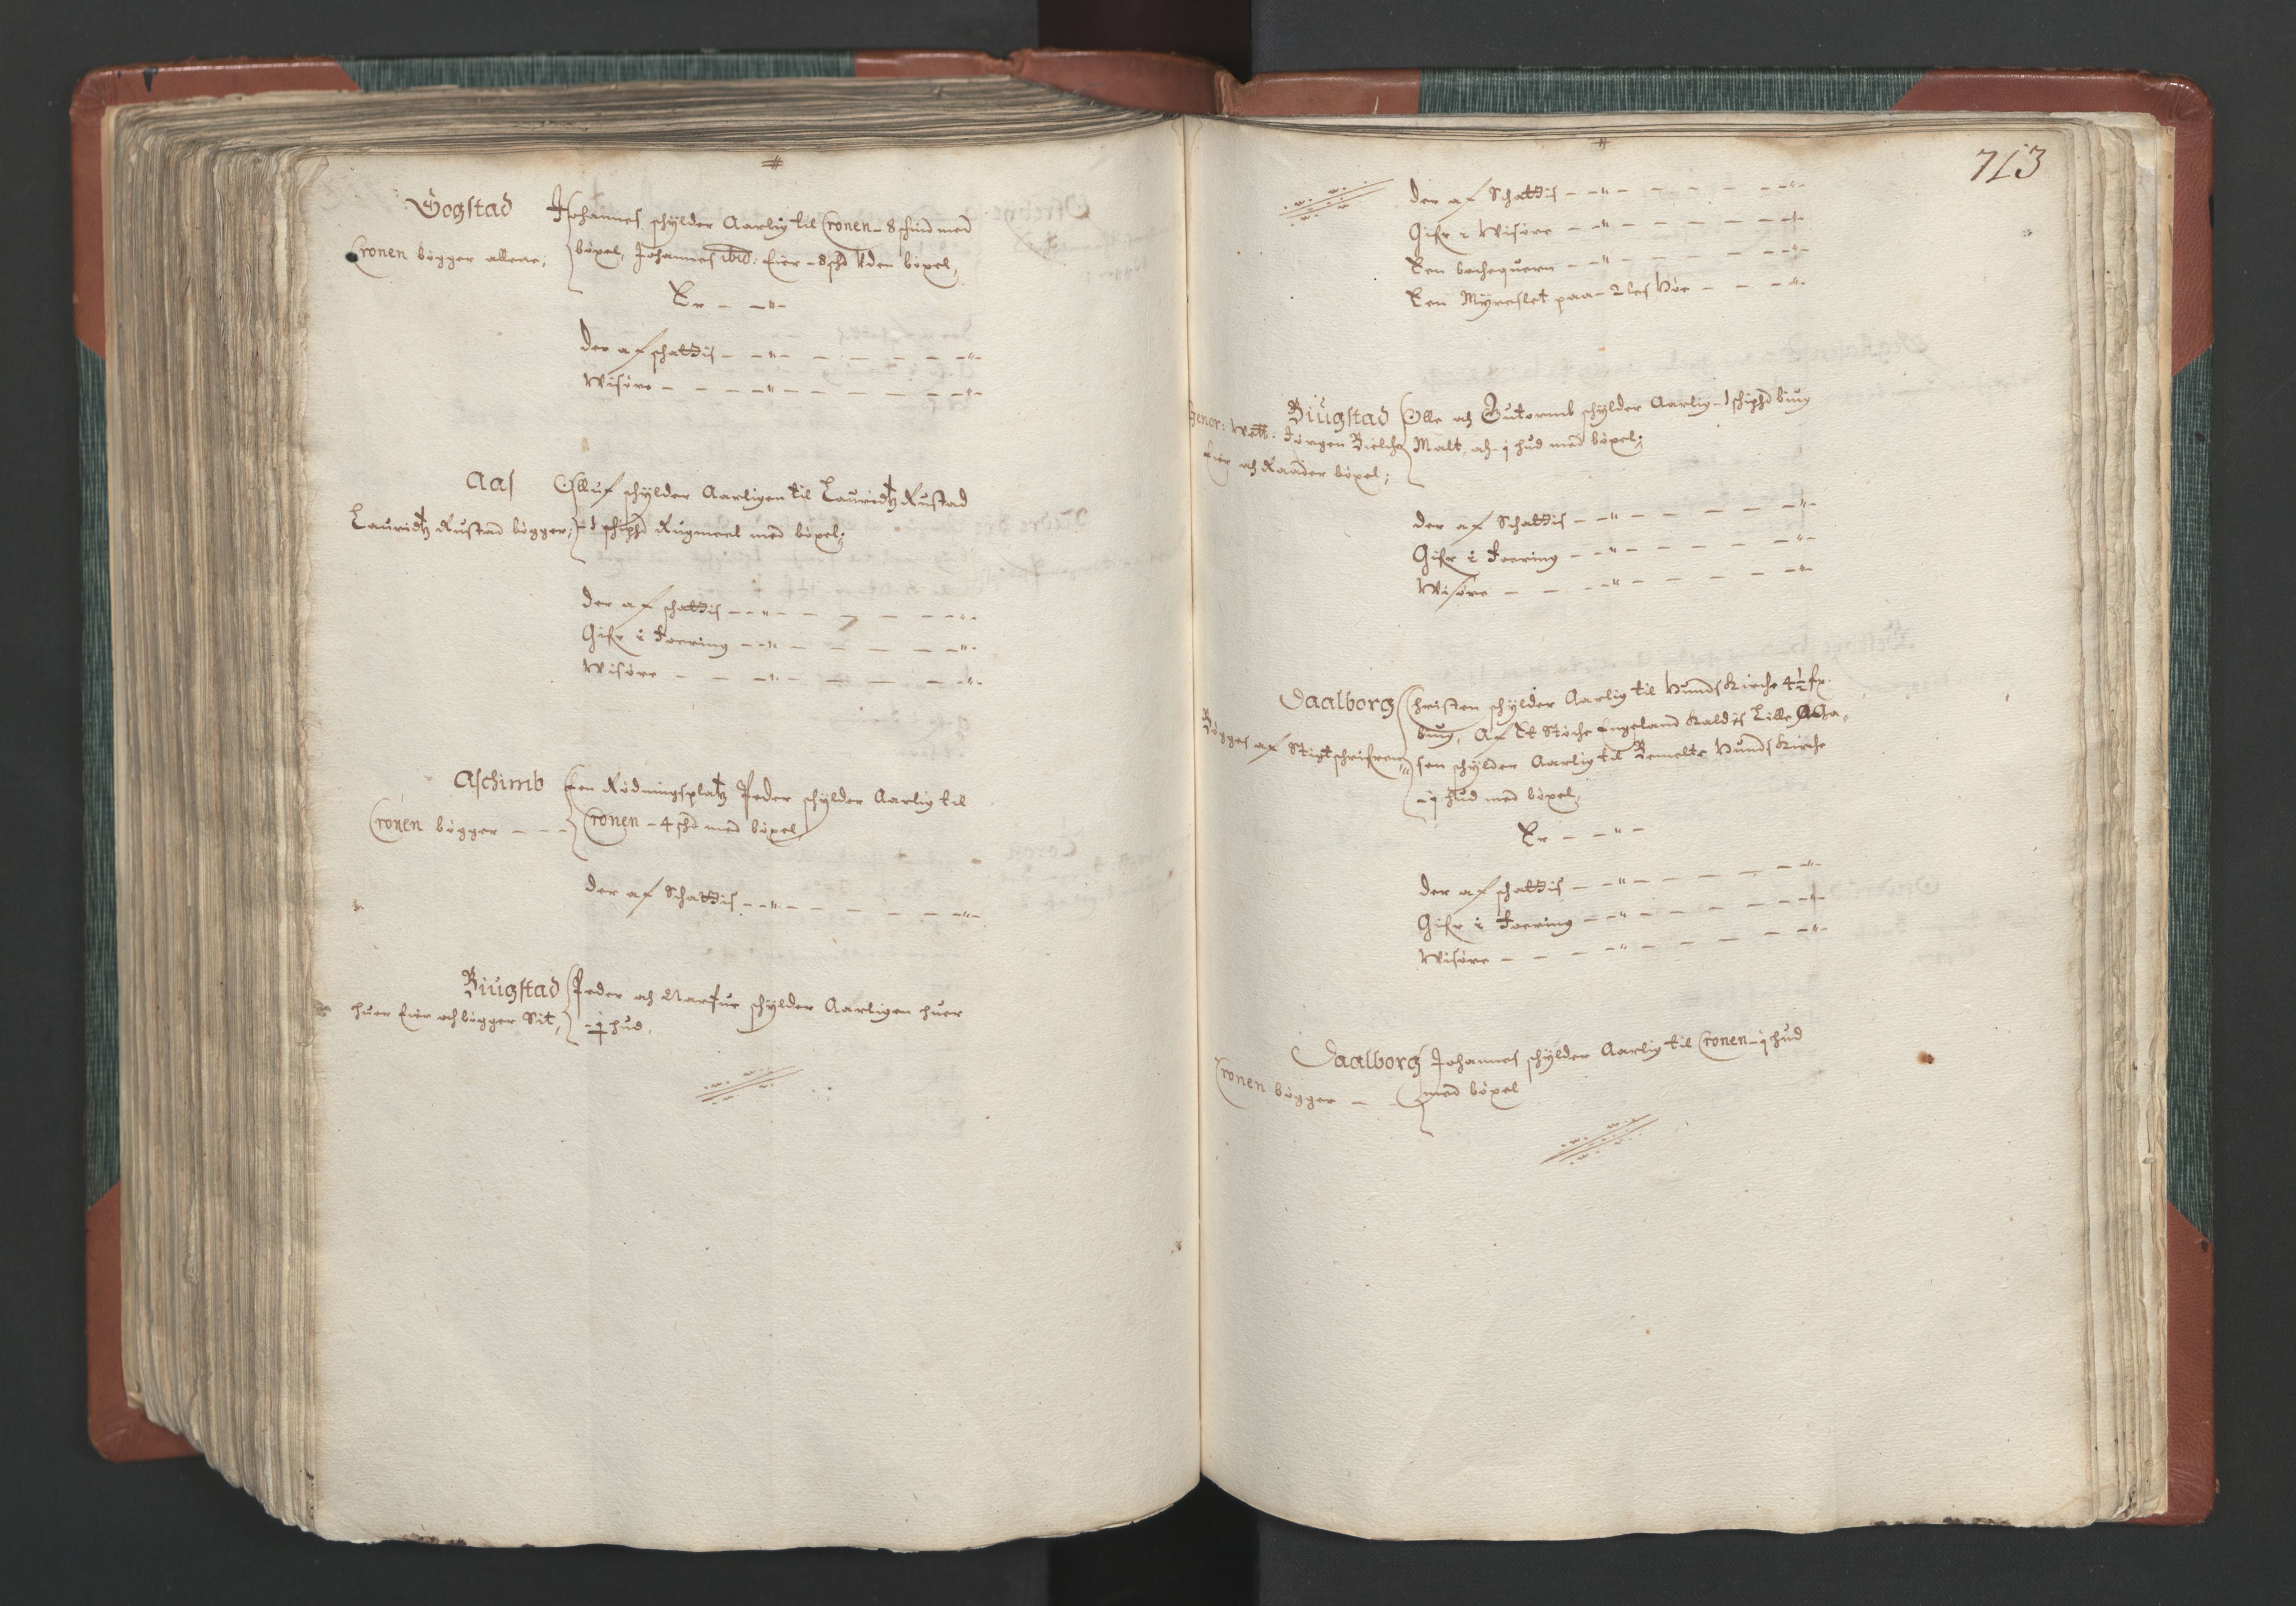 #
Gogstad Johannes schylder Aarlig til Cronen - 8 schind med
Cronen bögger allene; böxel, Johannes ibid: Eier - 8 schd Uden böxel,
Er - - " -
Der af schattis - - " - - - - - - " -
Wisöre - - - - " - - - - - - " -
Aas Olluf schylder Aarligen til Lauridtz Rustad
Lauridtz Rustad bögger; - 1 schpd Rugmeel med böxel;
Der af schattis - - " - - - - - - " -
Gifr i Foering - - " - - - - - - " -
Wisöre - - - " - - - - - - " -
Aschimb Een Rödningsplatz Peder schylder Aarlig til
Cronen bögger - - - Cronen - 4 schd med böxel
Der af Schattis - - " - - - - - - " -
Biugstad Peder och schylder Aarligen huer
huer Eier och bögger Sit, - j hud.
#
713
Der af Schattis - - " - - - - - - " -
Gifr i Wisöre - - " - - - - - - " -
Een bechequern - - " - - - - - - " -
Een Myreslet paa - 2 les höe - - - " -
Biugstad Olle och Gutormb schylder Aarlig - 1 schipd biug
Wett: Jörgen Bielche Malt, och - j hud med böxel;
Eier och Raader böxel;
Der af Schattis - - " - - - - - - " -
Gifr i Foering - - " - - - - - - " -
Wisöre - - - " - - - - - - " -
Daalborg Christen schylder Aarlig til Hunds Kirche 4½ fr.
Bögges af Stigtschrifren biug, Af Et Støche Engeland Kaldis Lille Aa-
sen schylder Aarlig til Bemelte Hunds Kirche
- j hud med böxel,
Er - - " -
Der af schattis - - " - - - - - - " -
Gifr i Foering - - " - - - - - - " -
Wisöre - - - " - - - - - - " -
Daalborg Johannes schylder Aarlig til Cronen - j hud
Cronen bögger - med böxel